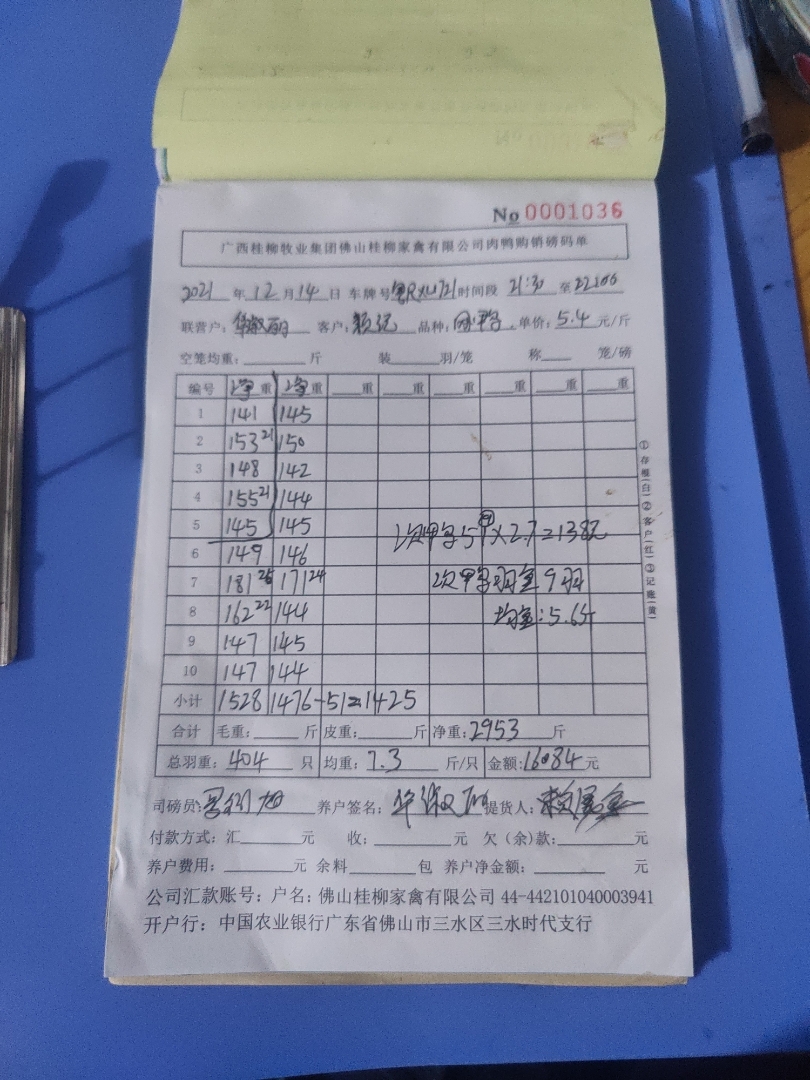 No 0001036
广西桂柳牧业集团佛山桂柳家禽有限公司肉鸭购销磅码单
2021 年 12 月 14 日 车牌号 时间段 21:30 至 22:00
联营户: 华淑丽 客户: 赖记 品种: 单价: 5.4 元/斤
空笼均重: 斤 装 羽/笼 称 笼/磅
编号 重 重 重 重 重 重 重 重
1 141 145
2 153 21 150
3 148 142
4 155 21 144
5 145 145
6 149 146
7 181 25 171 24
8 162 22 144
9 147 145
10 147 144
次甲字51斤×2.7=138元
次甲字羽重9羽
均重:5.6斤
小计 1528 1476-51=1425
合计 毛重: 斤 皮重: 斤 净重: 2953 斤
总羽重: 404 只 均重: 7.3 斤/只 金额: 16084 元
司磅员: 养户签名: 华淑丽 提货人:
付款方式: 汇 元 收: 元 欠(余)款: 元
养户费用: 元 余料 包 养户净金额: 元
公司汇款账号: 户名: 佛山桂柳家禽有限公司 44-442101040003941
开户行: 中国农业银行广东省佛山市三水区三水时代支行
①存根(白)②客户(红)③记账(黄)